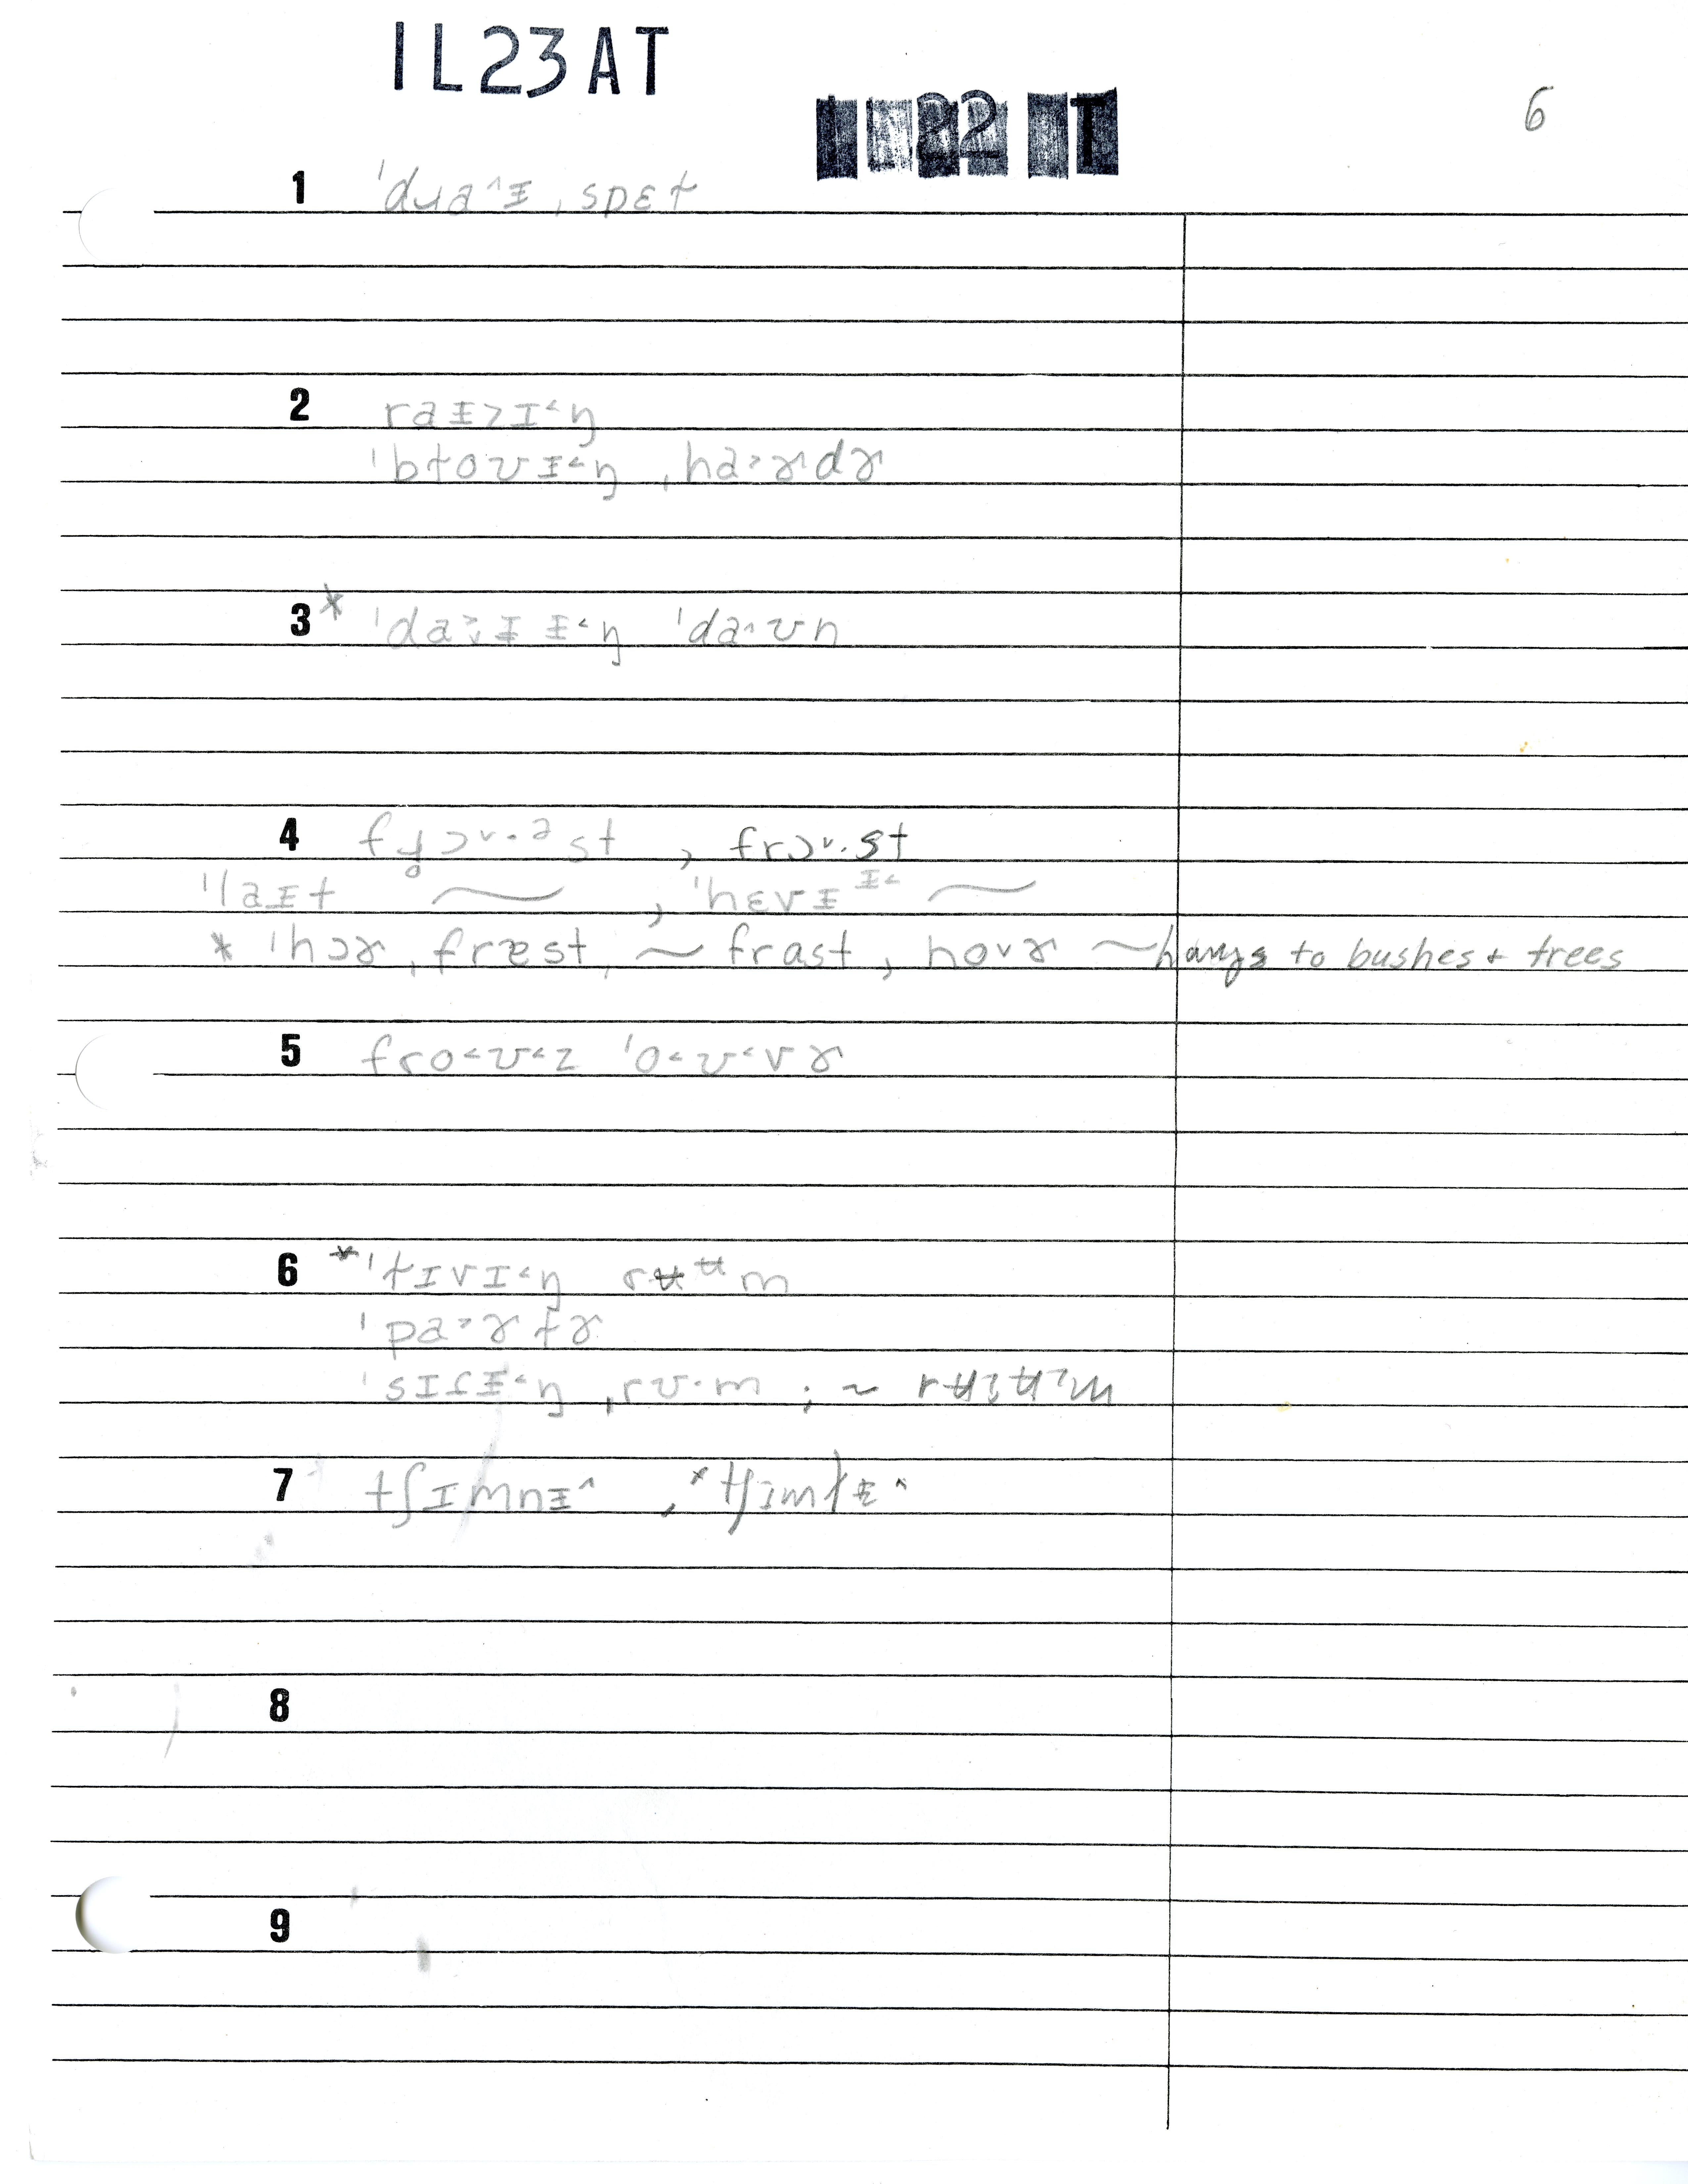 IL23AT
22 T
6
1 ˈdɹaˆᵻ ˌspɛɫ
2 raᵻ˃ɪ˂ŋ
ˈbɫoʊᵻ˂ŋ ˌha˃ɚdɚ
3 * ˈda˃ᵻ ᵻ˂ŋ ˈdaˆʊn
4 fɹ̥ɔˇ·ᵊst , frɔˇ·st
ˈlaᵻt ~ , ˈhɛvᵻ ~
* ˈhɔɚ ˌfrɒst, ~ frast, hovɚ ~ hangs to bushes + trees
5 fro˂ʊ˂z ˈo˂ʊ˂vɚ
6 * ˈɫɪvɪ˂ŋ rʉᵘ̶m
ˈpa˃ɚɫɚ
ˈsɪtᵻ˂ŋ ˌrʊ·m ; ~ rʉʉm
7 tʃɪmnᵻˆ , * tʃɪmɫᵻˆ
8
9